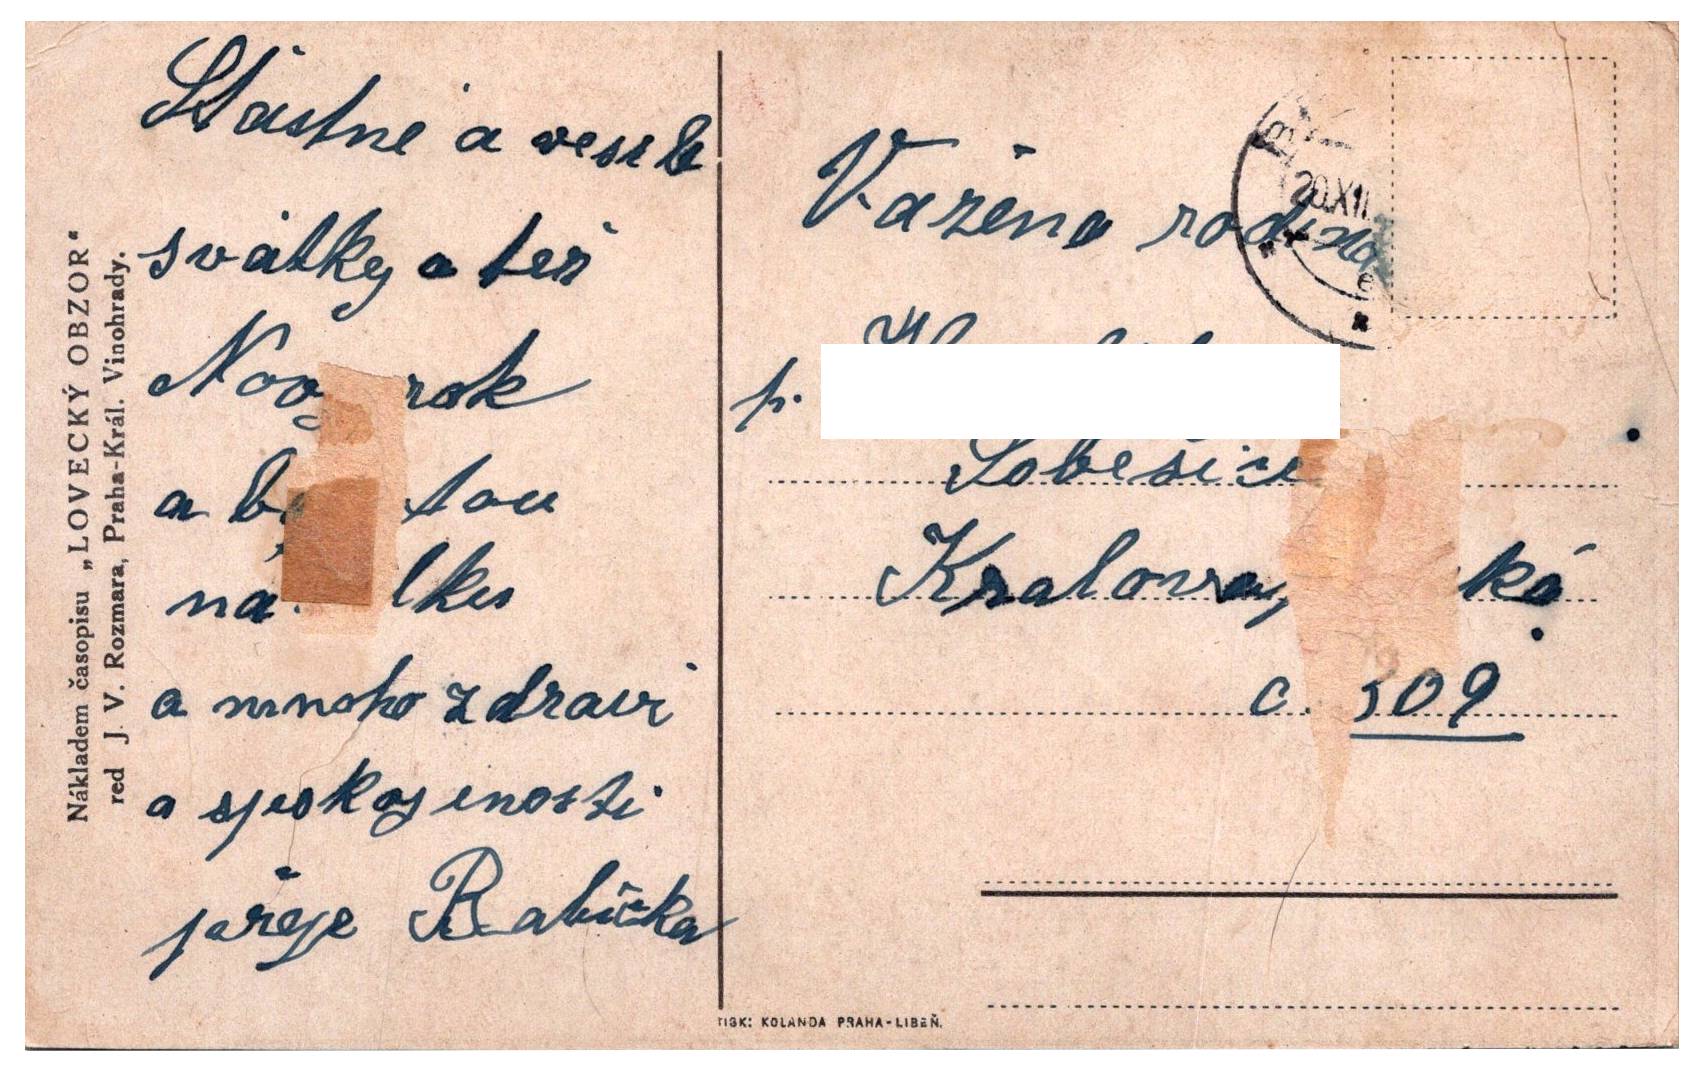 Nákladem časopisu „LOVECKÝ OBZOR"
red J. V. Rozmara, Praha-Král. Vinohrady.
Štastne a vesele
svátky a tež
Nový rok
a tou
a mnoho zdravi
a spokojenosti
přeje Babička
20.XII.
Važena rodina
p.
Sobešice
ká
č. 309
TISK: KOLANDA PRAHA-LIBEŇ.